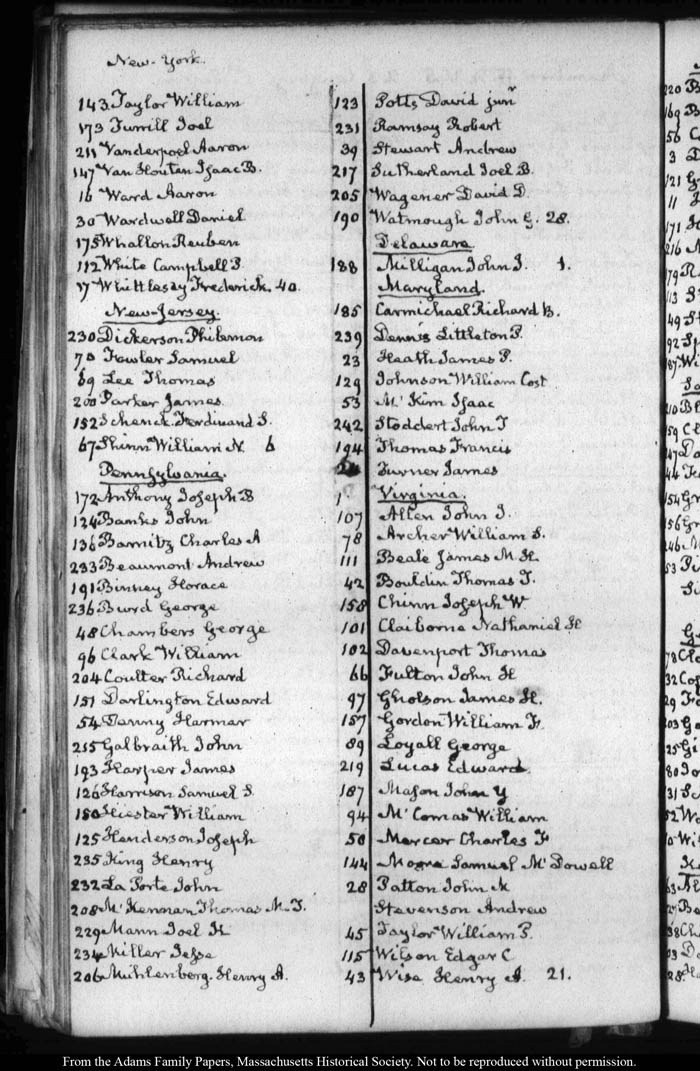 New-York.
143 Taylor William
173 Turrill Joel
211 Vanderpoel Aaron
147 Van Houten Isaac B.
16 Ward Aaron
30 Wardwell Daniel
175 Whallon Reuben
112 White Campbell P.
17 Whittlesey Frederick. 40.
New-Jersey.
230 Dickerson Philemon
70 Fowler Samuel
89 Lee Thomas
200 Parker James
152 Schenck Ferdinand S.
67 Shinn William N. 6
Pennsylvania.
172 Anthony Joseph B
124 Banks John
136 Barnitz Charles A
233 Beaumont Andrew
191 Binney Horace
236 Burd George
48 Chambers George
96 Clark William
204 Coulter Richard
151 Darlington Edward
54 Denny Harmar
215 Galbraith John
193 Harper James
126 Harrison Samuel S.
150 Hiester William
125 Henderson Joseph
235 King Henry
232 La Porte John
208 Mc Kennan Thomas M. T.
229 Mann Joel K
234 Miller Jesse
206 Muhlenberg. Henry A.
123 Potts David junr
231 Ramsay Robert
39 Stewart Andrew
217 Sutherland Joel B.
205 Wagener David D.
190 Watmough John G. 28.
Delaware
188 Milligan John J. 1.
Maryland.
185 Carmichael Richard B.
239 Dennis Littleton P.
23 Heath James P.
129 Johnson William Cost
53 Mc Kim Isaac
242 Stoddert John T
194 Thomas Francis
Turner James
Virginia.
107 Allen John J.
78 Archer William S.
111 Beale James M. H.
42 Bouldin Thomas T.
158 Chinn Joseph W
101 Claiborne Nathaniel H
102 Davenport Thomas
66 Fulton John H
97 Gholson James H.
157 Gordon William F.
89 Loyall George
219 Lucas Edward
187 Mason John Y
94 Mc Comas William
50 Mercer Charles F
144 Moore Samuel Mc Dowell
28 Patton John M
Stevenson Andrew
45 Taylor William P.
115 Wilson Edgar C
43 Wise Henry A. 21.
From the Adams Family Papers, Massachusetts Historical Society. Not to be reproduced without permission.